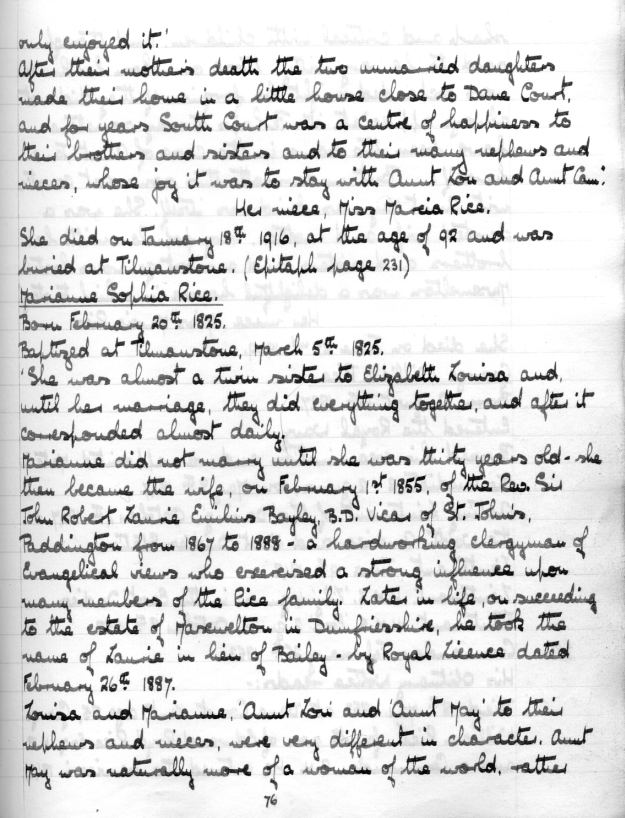 only enjoyed it.'
After their mother's death the two unmarried daughters
made their home in a little house close to Dane Court,
and for years South Court was a centre of happiness to
their brothers and sisters and to their many nephews and
nieces, whose joy it was to stay with Aunt Lou and Aunt Cam.'
Her niece, Miss Marcia Rice.
She died on January 18th 1916, at the age of 92 and was
buried at Tilmanstone. (Epitaph page 231)
Marianne Sophia Rice.
Born February 20th 1825.
Baptized at Tilmanstone, March 5th 1825.
'She was almost a twin sister to Elizabeth Louisa and,
until her marriage, they did everything together, and after it
corresponded almost daily.
Marianne did not marry until she was thirty years old - she
then became the wife, on February 1st 1855, of the Rev. Sir
John Robert Laurie Emilius Bayley, B.D. Vicar of St. John's,
Paddington from 1867 to 1888 - a hardworking clergyman of
Evangelical views who exercised a strong influence upon
many members of the Rice family. Later in life, on succeeding
to the estate of Maxwelton in Dumfriesshire, he took the
name of Laurie in lieu of Bailey - by Royal Licence dated
February 26th 1887.
Louisa and Marianne, 'Aunt Lou' and 'Aunt May' to their
nephews and nieces, were very different in character. Aunt
May was naturally more of a woman of the world, rather
76